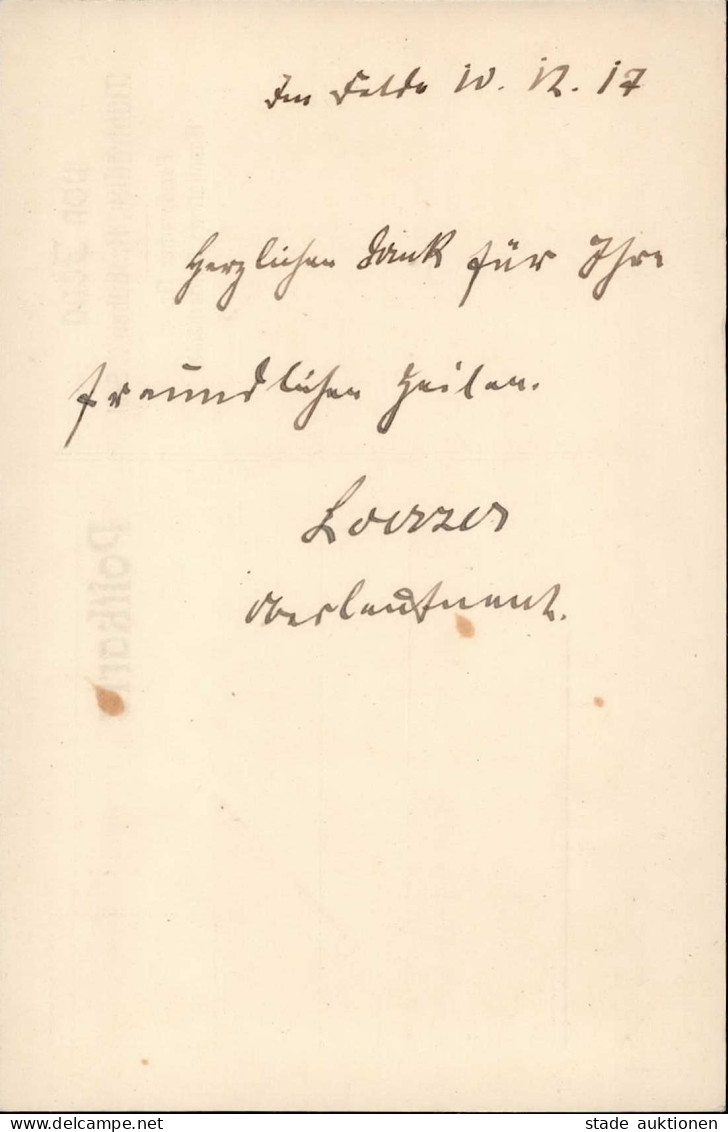 Im Felde 10. 12. 17
Herzlichen Dank für Ihre
freundlichen Zeilen.
Loerzer
Oberleutnant.
Postkarte
www.delcampe.net
stade auktionen